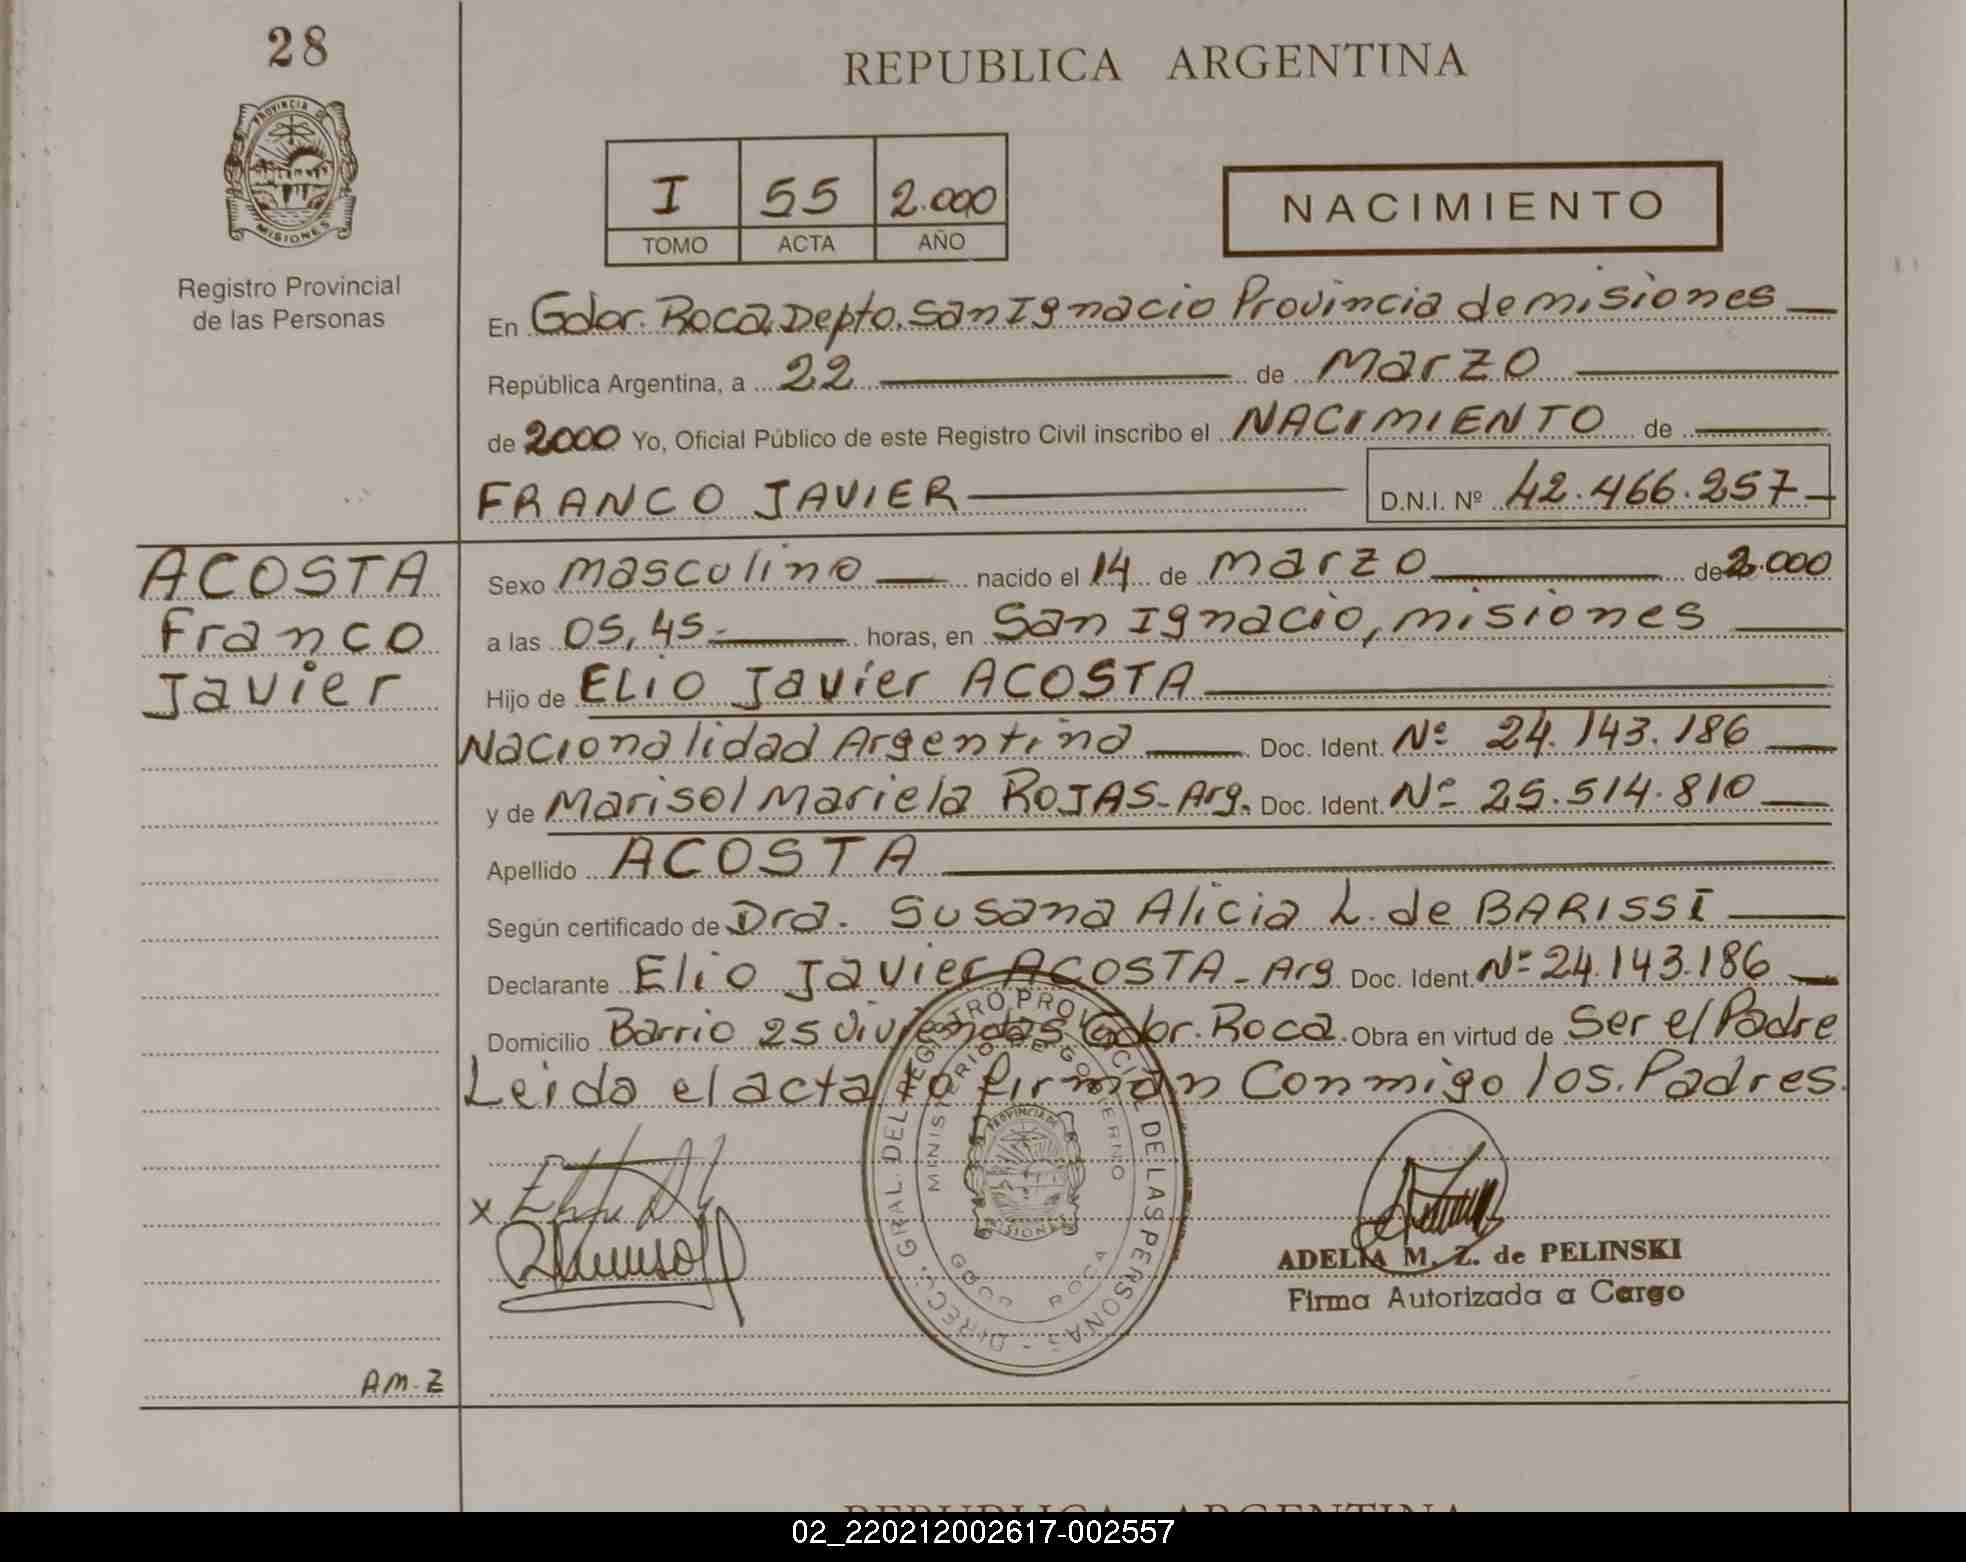 28
REPUBLICA ARGENTINA
PROVINCIA DE
MISIONES
Registro Provincial
de las Personas
I 55 2.000
TOMO ACTA AÑO
NACIMIENTO
En Gdor. Roca, Depto. San Ignacio Provincia de misiones
República Argentina, a 22 de Marzo
de 2000 Yo, Oficial Público de este Registro Civil inscribo el NACIMIENTO de
FRANCO JAVIER D.N.I. Nº 42.466.257
ACOSTA
Franco
Javier
Sexo masculino nacido el 14 de marzo de 2.000
a las 05,45.- horas, en San Ignacio, misiones
Hijo de ELIO Javier ACOSTA
Nacionalidad Argentina Doc. Ident. Nº 24.143.186
y de Marisol Mariela ROJAS-Arg. Doc. Ident. Nº 25.514.810
Apellido ACOSTA
Según certificado de Dra. Susana Alicia L. de BARISSI
Declarante Elio Javier ACOSTA-Arg Doc. Ident. Nº 24.143.186
Domicilio Barrio 25 viviendas Gdor. Roca. Obra en virtud de Ser el Padre
Leido el acta la firman Conmigo los Padres.
DIREC. GRAL. DEL REGISTRO PROVINCIAL DE LAS PERSONAS -
MINISTERIO DE GOBIERNO
PROVINCIA DE
MISIONES
ROCA
x
ADELIA M. Z. de PELINSKI
Firma Autorizada a Cargo
AM.Z
REPUBLICA ARGENTINA
02_220212002617-002557